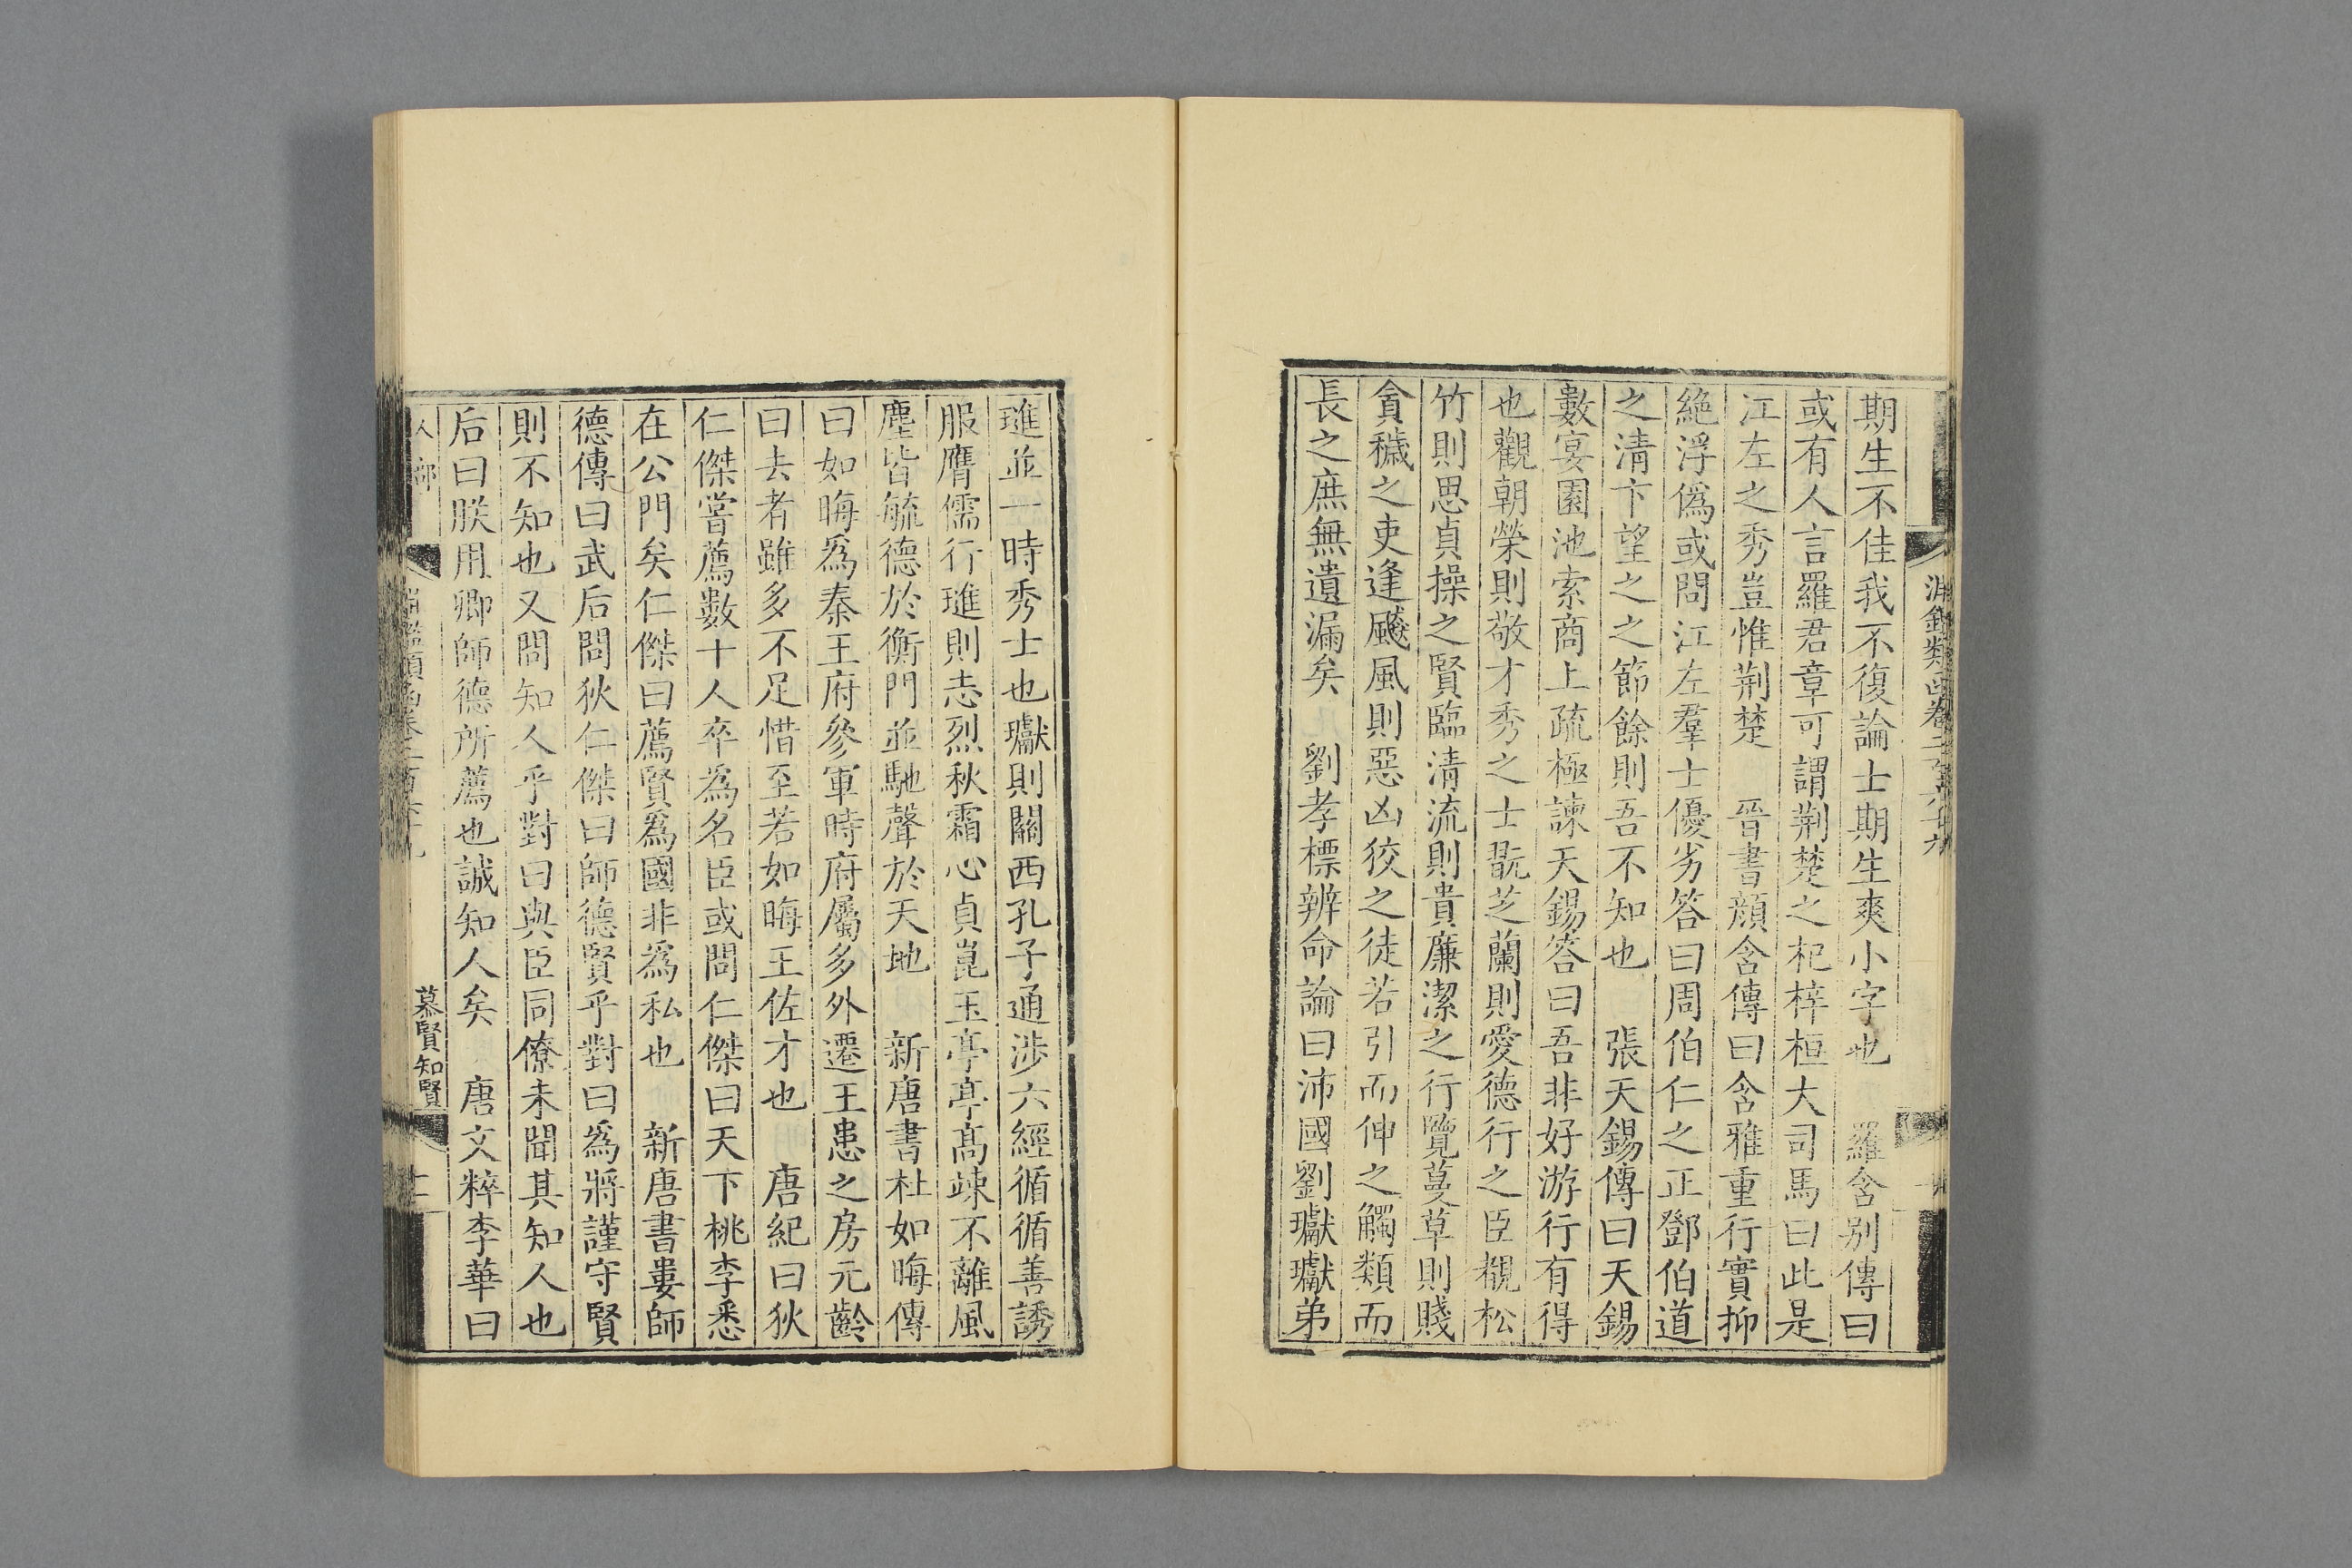 淵鑑類函卷二百六十九
期生不佳我不復論士期生爽小字也　羅含別傳曰
或有人言羅君章可謂荆楚之杞梓桓大司馬曰此是
江左之秀豈惟荆楚　晉書顔含傳曰含雅重行實抑
絶浮僞或問江左羣士優劣答曰周伯仁之正鄧伯道
之清卞望之之節餘則吾不知也　張天錫傳曰天錫
數宴園池索商上疏極諫天錫答曰吾非好游行有得
也觀朝榮則敬才秀之士翫芝蘭則愛德行之臣覩松
竹則思貞操之賢臨清流則貴廉潔之行覽蔓草則賤
貪穢之吏逢飈風則惡凶狡之徒若引而伸之觸類而
長之庶無遺漏矣　劉孝標辨命論曰沛國劉瓛瓛弟
璡並一時秀士也瓛則關西孔子通涉六經循循善誘
服膺儒行璡則志烈秋霜心貞崑玉亭亭高竦不離風
塵皆毓德於衡門並馳聲於天地　新唐書杜如晦傳
曰如晦爲秦王府參軍時府屬多外遷王患之房元齡
曰去者雖多不足惜至若如晦王佐才也　唐紀曰狄
仁傑嘗薦數十人卒爲名臣或問仁傑曰天下桃李悉
在公門矣仁傑曰薦賢爲國非爲私也　新唐書婁師
德傳曰武后問狄仁傑曰師德賢乎對曰爲將謹守賢
則不知也又問知人乎對曰與臣同僚未聞其知人也
后曰朕用卿師德所薦也誠知人矣　唐文粹李華曰
人部　淵鑑類函卷二百六十九　慕賢知賢　十一